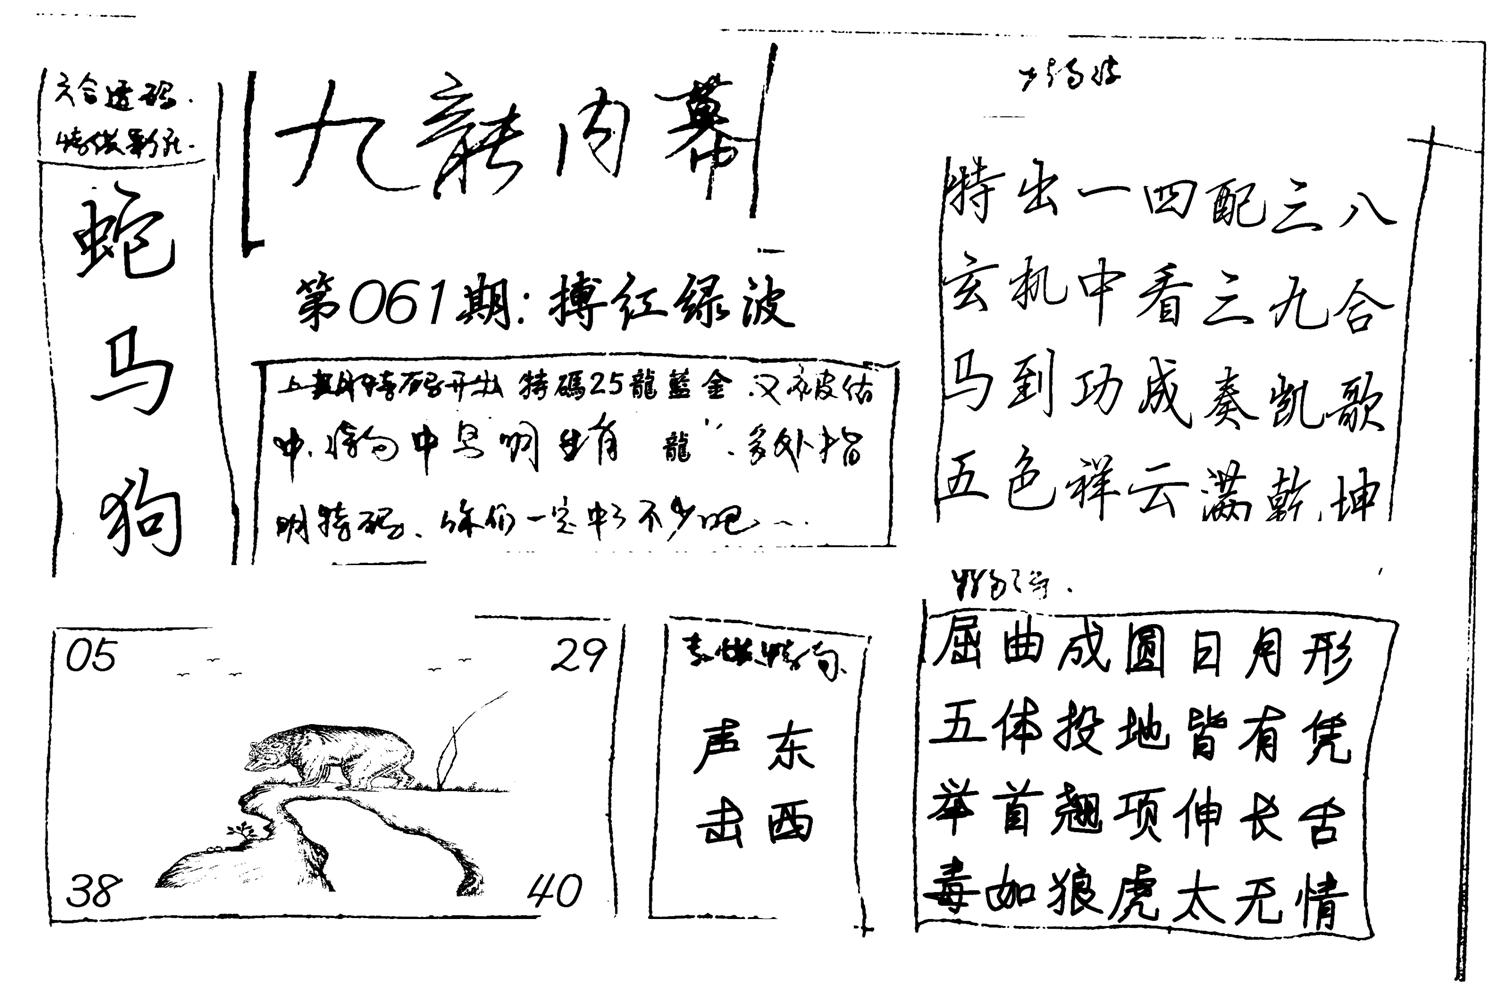 六合透码.
蛇
马
狗
九龍内幕
第061期:搏红绿波
上期特码开出 特碼25龍藍金.又被估
中.特肖中早明生肖 龍".多处指
明特码、你们一定中了不少吧…
特出一四配三八
玄机中看三九合
马到功成奏凯歌
五色祥云满乾坤
屈曲成圆日月形
五体投地皆有凭
举首翘项伸长舌
毒如狼虎太无情
声东
击西
05
29
38
40